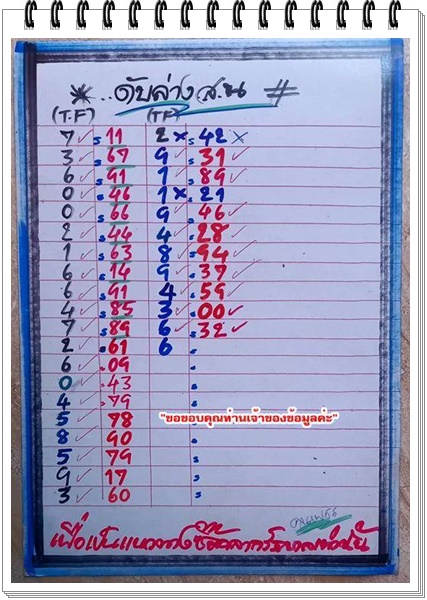 * ..ดับล่าง ส.น #
(T.F) (TF)
7 ✓ . 11 2 × . 42 ×
3 ✓ . 67 9 ✓ . 31 ✓
6 ✓ . 91 1 ✓ . 89 ✓
0 ✓ . 46 1 × . 21
0 ✓ . 66 9 ✓ . 46 ✓
2 ✓ . 44 4 ✓ . 28 ✓
1 ✓ . 63 8 ✓ . 94 ✓
6 ✓ . 14 9 ✓ . 37 ✓
6 ✓ . 91 4 ✓ . 59 ✓
4 ✓ . 85 3 ✓ . 00 ✓
7 ✓ . 89 6 ✓ . 32 ✓
2 ✓ . 61 6 .
6 ✓ . 09 .
0 ✓ . 43 .
4 ✓ . 79 .
5 ✓ . 78
"ขอขอบคุณท่านเจ้าของข้อมูลค่ะ"
8 ✓ . 90
5 ✓ . 79 .
9 ✓ . 17 .
3 ✓ . 60 .
เพื่อเป็นแนวทางซื้อสลากรัฐบาลเท่านั้น